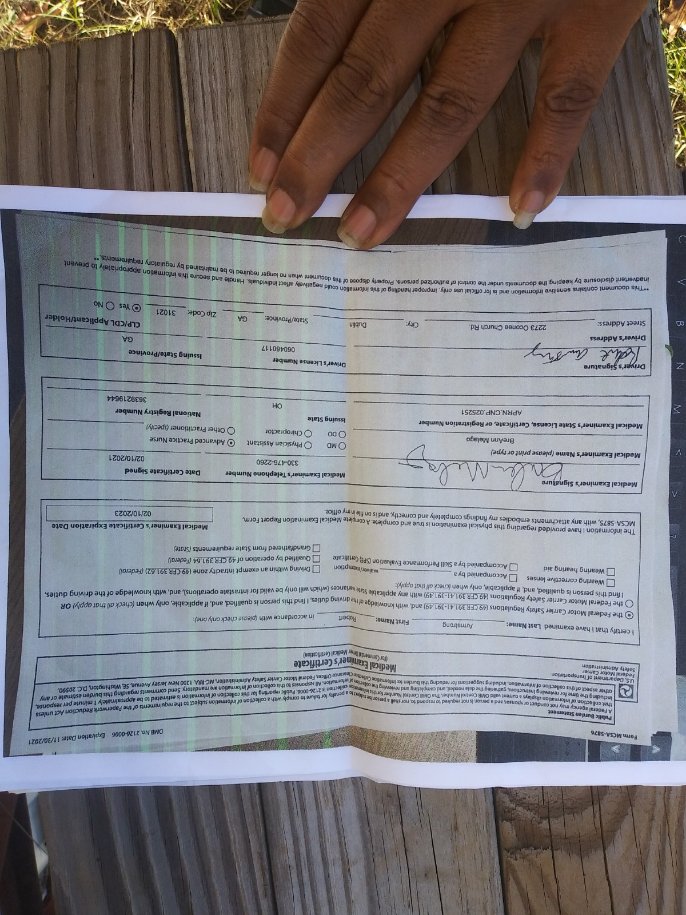 Form MCSA-5876
OMB No. 2126-0006 Expiration Date: 11/30/2021
Public Burden Statement
A Federal agency may not conduct or sponsor, and a person is not required to respond to, nor shall a person be subject to a penalty for failure to comply with a collection of information subject to the requirements of the Paperwork Reduction Act unless
that collection of information displays a current valid OMB Control Number. The OMB Control Number for this information collection is 2126-0006. Public reporting for this collection of information is estimated to be approximately 1 minute per response,
U.S. Department of Transportation
Federal Motor Carrier
Safety Administration
Medical Examiner's Certificate
(for Commercial Driver Medical Certification)
I certify that I have examined Last Name: Armstrong First Name: Robert in accordance with (please check only one):
the Federal Motor Carrier Safety Regulations (49 CFR 391.41-391.49) and, with knowledge of the driving duties, I find this person is qualified, and, if applicable, only when (check all that apply) OR
the Federal Motor Carrier Safety Regulations (49 CFR 391.41-391.49) with any applicable State variances (which will only be valid for intrastate operations), and, with knowledge of the driving duties,
I find this person is qualified, and, if applicable, only when (check all that apply):
Wearing corrective lenses Accompanied by a waiver/exemption Driving within an exempt intracity zone (49 CFR 391.62) (Federal)
Wearing hearing aid Accompanied by a Skill Performance Evaluation (SPE) Certificate Qualified by operation of 49 CFR 391.64 (Federal)
Grandfathered from State requirements (State)
The information I have provided regarding this physical examination is true and complete. A complete Medical Examination Report Form,
MCSA-5875, with any attachments embodies my findings completely and correctly, and is on file in my office.
Medical Examiner's Certificate Expiration Date
02/10/2023
Medical Examiner's Signature
Medical Examiner's Telephone Number
330-476-2260
Date Certificate Signed
02/10/2021
Medical Examiner's Name (please print or type)
BreAnn Malago
MD Physician Assistant Advanced Practice Nurse
DO Chiropractor Other Practitioner (specify)
Medical Examiner's State License, Certificate, or Registration Number
APRN.CNP.025251
Issuing State
OH
National Registry Number
3639219644
Driver's Signature
Driver's License Number
060460117
Issuing State/Province
GA
Driver's Address
Street Address: 2273 Oconee Church Rd City: Dublin State/Province: GA Zip Code: 31021
CLP/CDL Applicant/Holder
Yes No
**This document contains sensitive information and is for official use only. Improper handling of this information could negatively affect individuals. Handle and secure this information appropriately to prevent
inadvertent disclosure by keeping the documents under the control of authorized persons. Properly dispose of this document when no longer required to be maintained by regulatory requirements.**